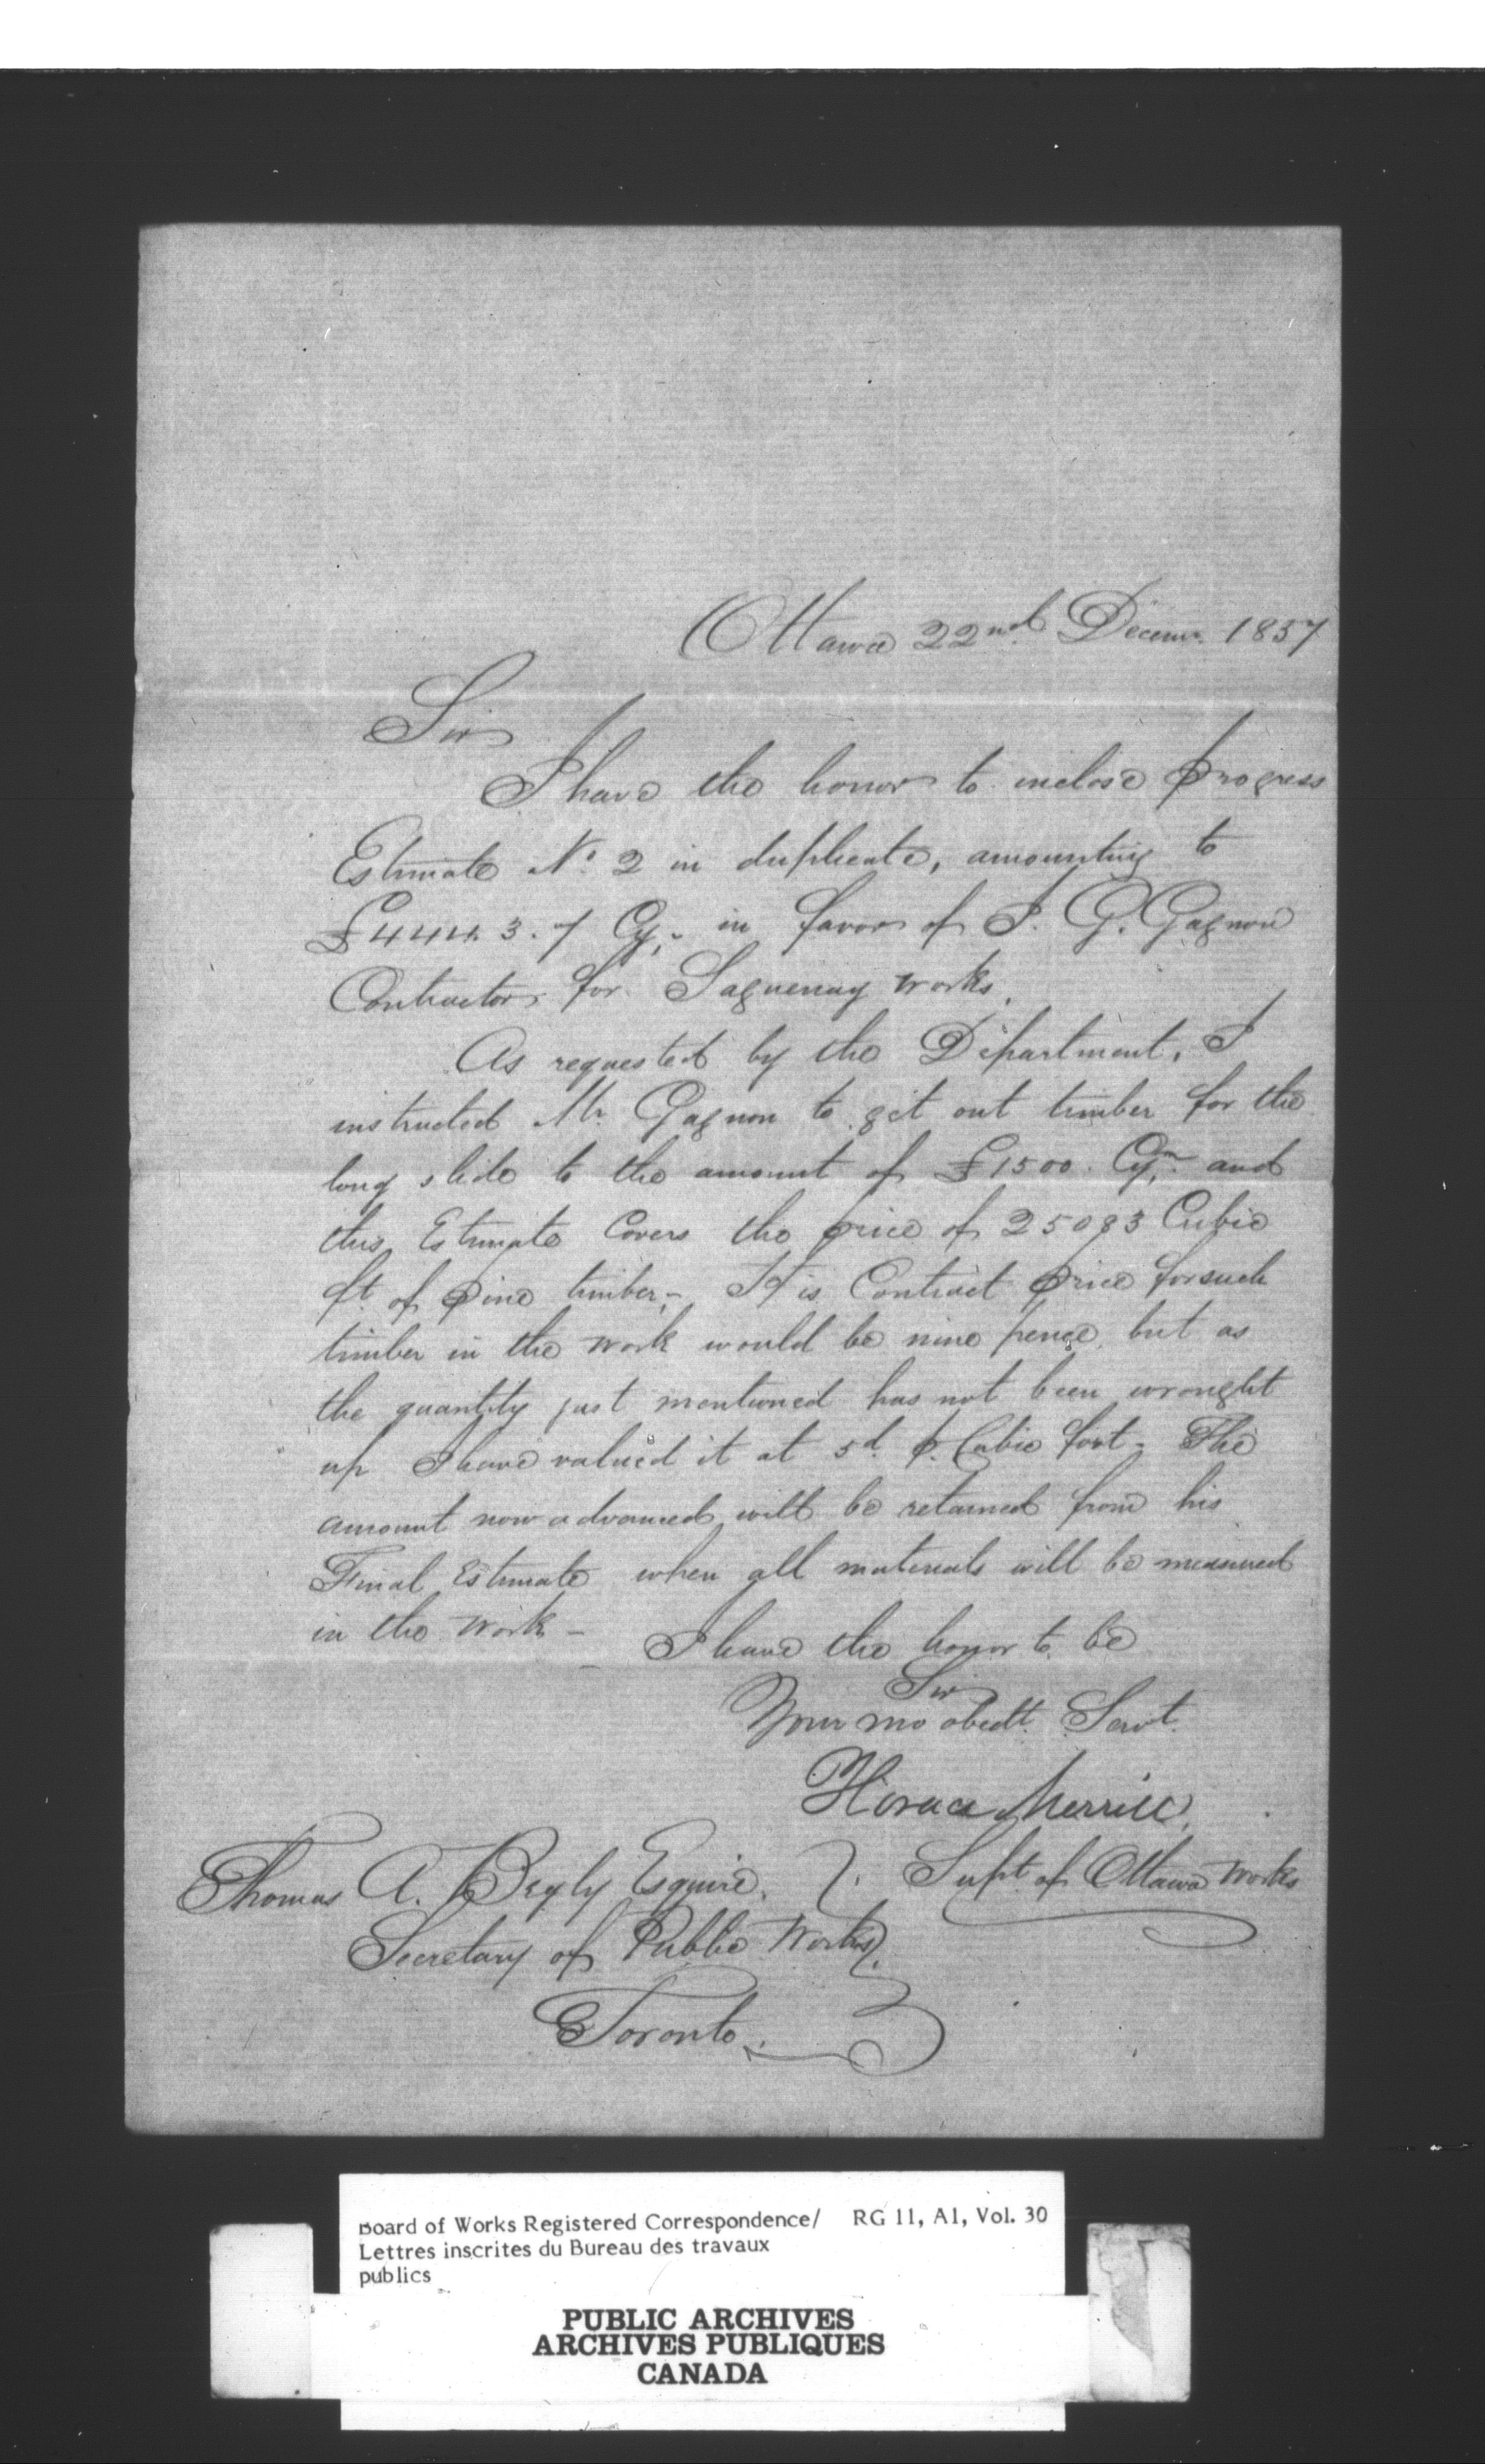 Ottawa 22nd Decemr. 1857
Sir
I have the honor to inclose progress
Estimate No. 2 in duplicate, amounting to
£444. 3. 7 Cy,- in favor of J. G. Gagnon
Contractor for Saguenay works.
As requested by the Department, I
instructed Mr. Gagnon to get out timber for the
long slide to the amount of £1500. Cy. and
this Estimate Covers the price of 25083 Cubic
ft. of pine timber,- Contract price for such
timber in the work would be nine pence, but as
the quantity just mentioned has not been wrought
up I have valued it at 5d. p. Cubic foot - The
amount now advanced will be retained from his
Final Estimate when all materials will be measured
in the work -
I have the honor to be
Sir
Your mo obedt. Servt.
Horace Merrill,
Supt of Ottawa Works
Thomas A. Begly Esquire,
Secretary of Public Works,
Toronto.
Board of Works Registered Correspondence/ RG 11, A1, Vol. 30
Lettres inscrites du Bureau des travaux
publics
PUBLIC ARCHIVES
ARCHIVES PUBLIQUES
CANADA